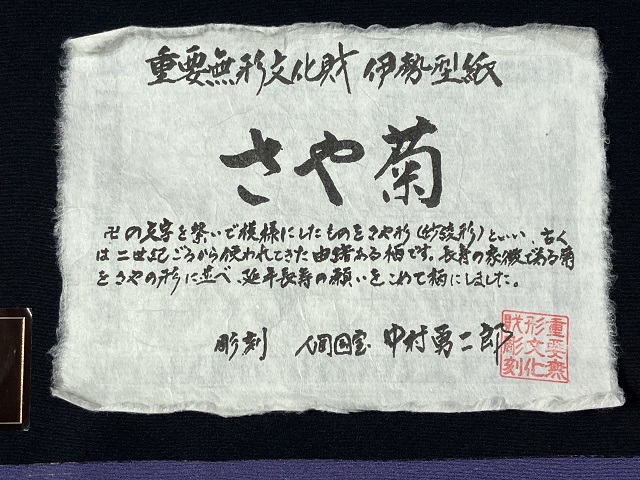 重要無形文化財 伊勢型紙
さや菊
卍の文字を繋いで模様にしたものをさや形(紗綾形)といい、古く
は二世紀ごろから使われてきた由緒ある柄です。長寿の象徴である菊
をさやの形に並べ、延年長寿の願いをこめて柄にしました。
彫刻 人間国宝 中村勇二郎
重要無
形文化
財彫刻